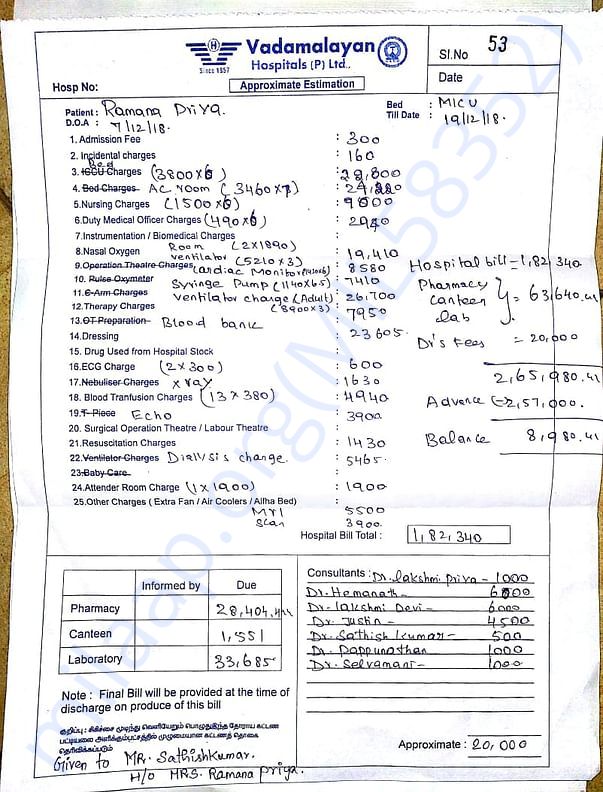 Vadamalayan
Hospitals (P) Ltd.,
Since 1957
Sl.No 53
Hosp No:
Approximate Estimation
Date
Patient : Ramana Priya.
Bed : MICU
D.O.A : 7/12/18.
Till Date : 19/12/18.
1. Admission Fee : 300
2. Incidental charges : 160
3. ISCU Bed Charges (3800x6) : 22,800
4. Bed Charges AC room (3460x7) :
5. Nursing Charges (1500x6) : 9000
6. Duty Medical Officer Charges (490x6) : 2940
7. Instrumentation / Biomedical Charges :
8. Nasal Oxygen Room (2x1890) ventilator (5210x3) : 19,410
9. Operation Theatre Charges Cardiac Monitor : 8580
10. Pulse Oxymeter Syringe Pump (1140x6.5) : 7410
11. C-Arm Charges ventilator charge (Adult) (8900x3) : 26,700
12. Therapy Charges : 7950
13. OT Preparation Blood bank
14. Dressing : 23605.
15. Drug Used from Hospital Stock
16. ECG Charge (2x300) : 600
17. Nebuliser Charges X ray : 1630
18. Blood Tranfution Charges (13x380) : 4940
19. T-Piece Echo : 3900
20. Surgical Operation Theatre / Labour Theatre
21. Resuscitation Charges : 1430
22. Ventilator Charges Dialysis charge. : 5465.
23. Baby Care
24. Attender Room Charge (1x1900) : 1900
25. Other Charges ( Extra Fan / Air Coolers / Allha Bed) :
MRI 5500
Scan 3900.
Hospital Bill Total : 1,82,340
Hospital bill = 1,82,340
Pharmacy
Canteen
Lab } = 63,640.41
Dr's Fees = 20,000
2,65,980.41
Advance (-) 2,57,000.
Balance 8,980.41
Informed by Due
Pharmacy 28,404.41
Canteen 1,551
Laboratory 33,685
Consultants : Dr. Lakshmi priya - 1000
Dr. Hemanath - 6000
Dr. Lakshmi Devi - 6000
Dr. Justin - 4500
Dr. Sathish Kumar - 500
Dr. Pappunathan - 1000
Dr. Selvamani - 1000
Note : Final Bill will be provided at the time of
discharge on produce of this bill
Approximate : 20,000
Given to MR. Sathishkumar.
H/O MRS. Ramana priya.